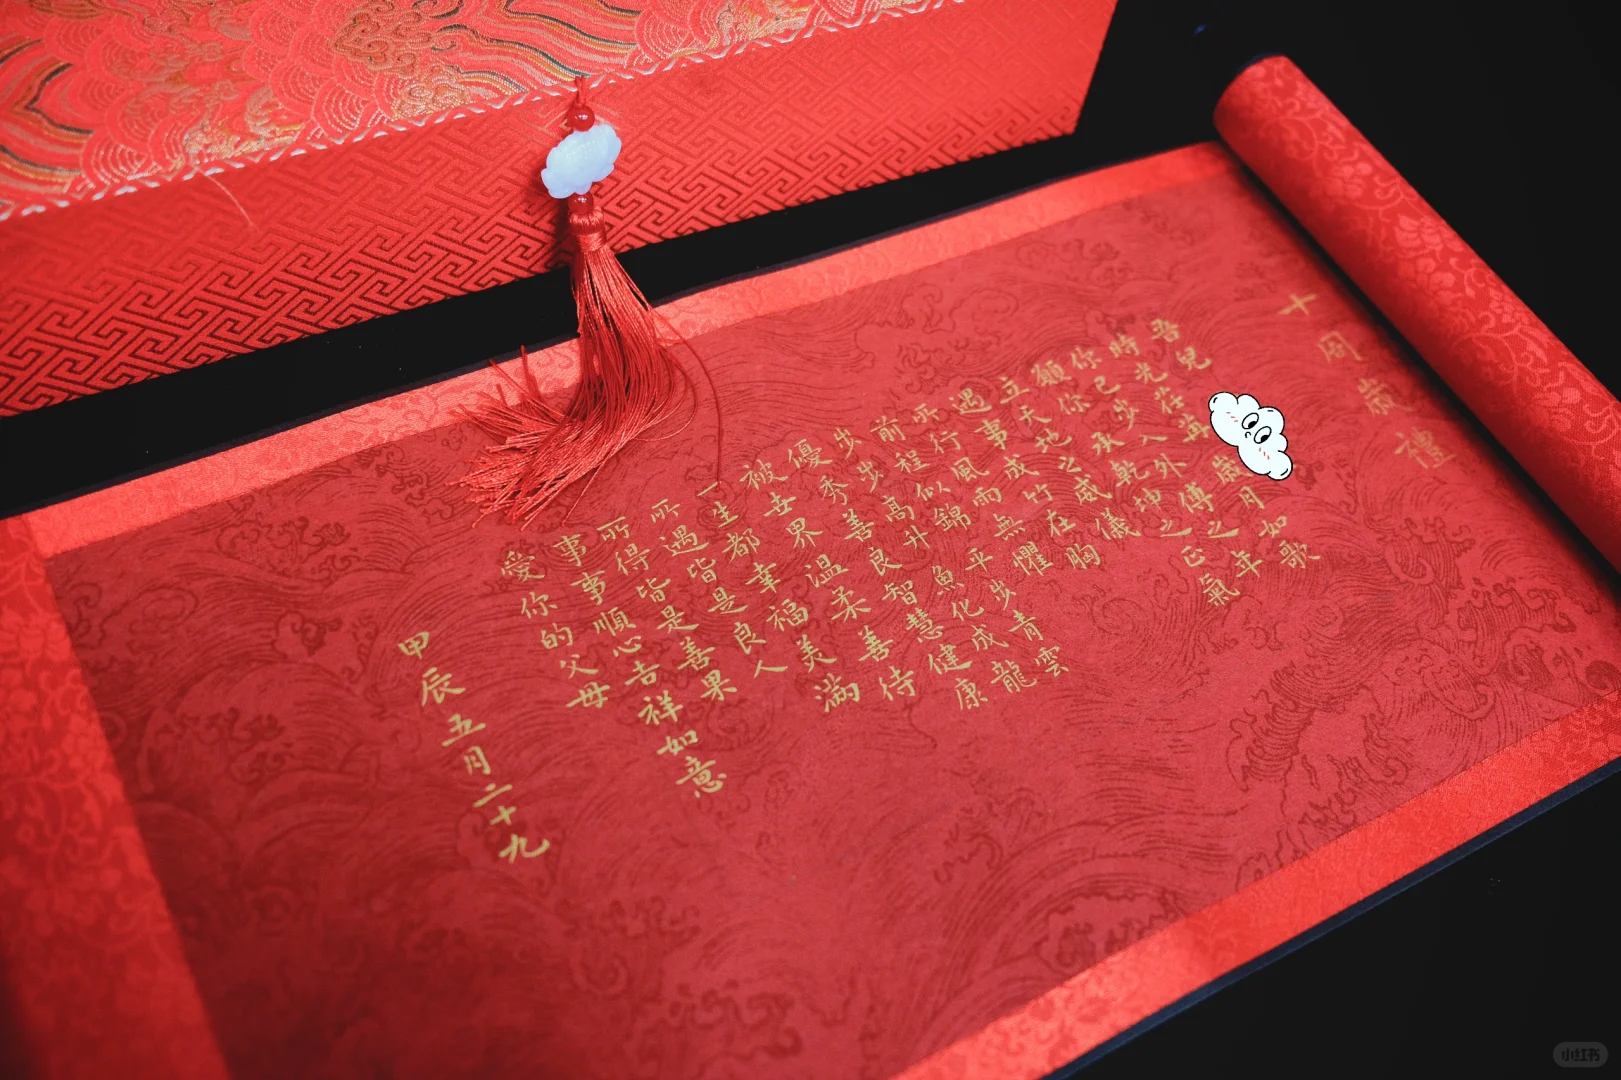 十周歲禮
吾兒
時光荏苒歲月如歌
你已步入外傅之年
願你承乾坤之正氣
立天地之威儀
遇事成竹在胸
所行風而無懼
前程似錦平步青雲
步步高升魚化成龍
優秀善良智慧健康
被世界溫柔善待
一生都幸福美滿
所遇皆是良人
所得皆是善果
事事順心吉祥如意
愛你的父母
甲辰五月二十九
小红书